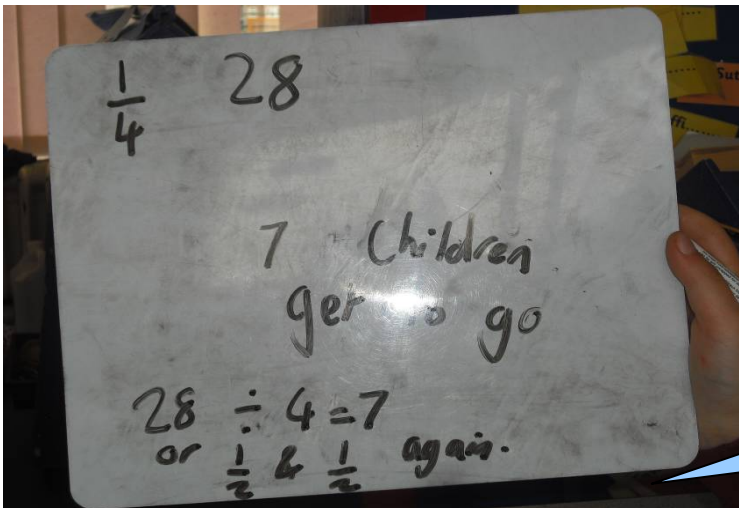 1/4 28
7 Children
get to go
28 ÷ 4 = 7
or 1/2 & 1/2 again.